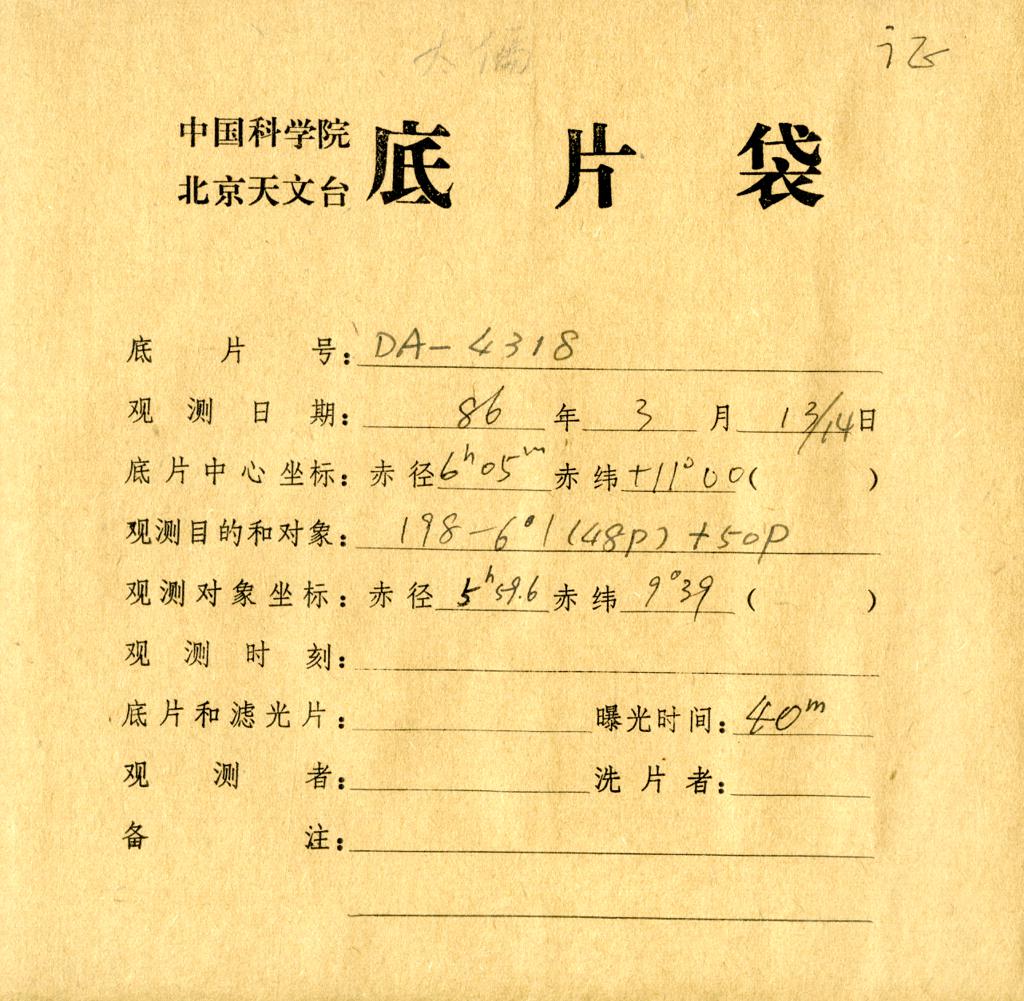 证
中国科学院
北京天文台
底片袋
底片号：DA-4318
观测日期：86年3月13/14日
底片中心坐标：赤径6ʰ05ᵐ赤纬+11°00(　)
观测目的和对象：198-6°1(48P)+50P
观测对象坐标：赤径5ʰ59.6赤纬9°39(　)
观测时刻：
底片和滤光片：　曝光时间：40ᵐ
观测者：　洗片者：
备注：